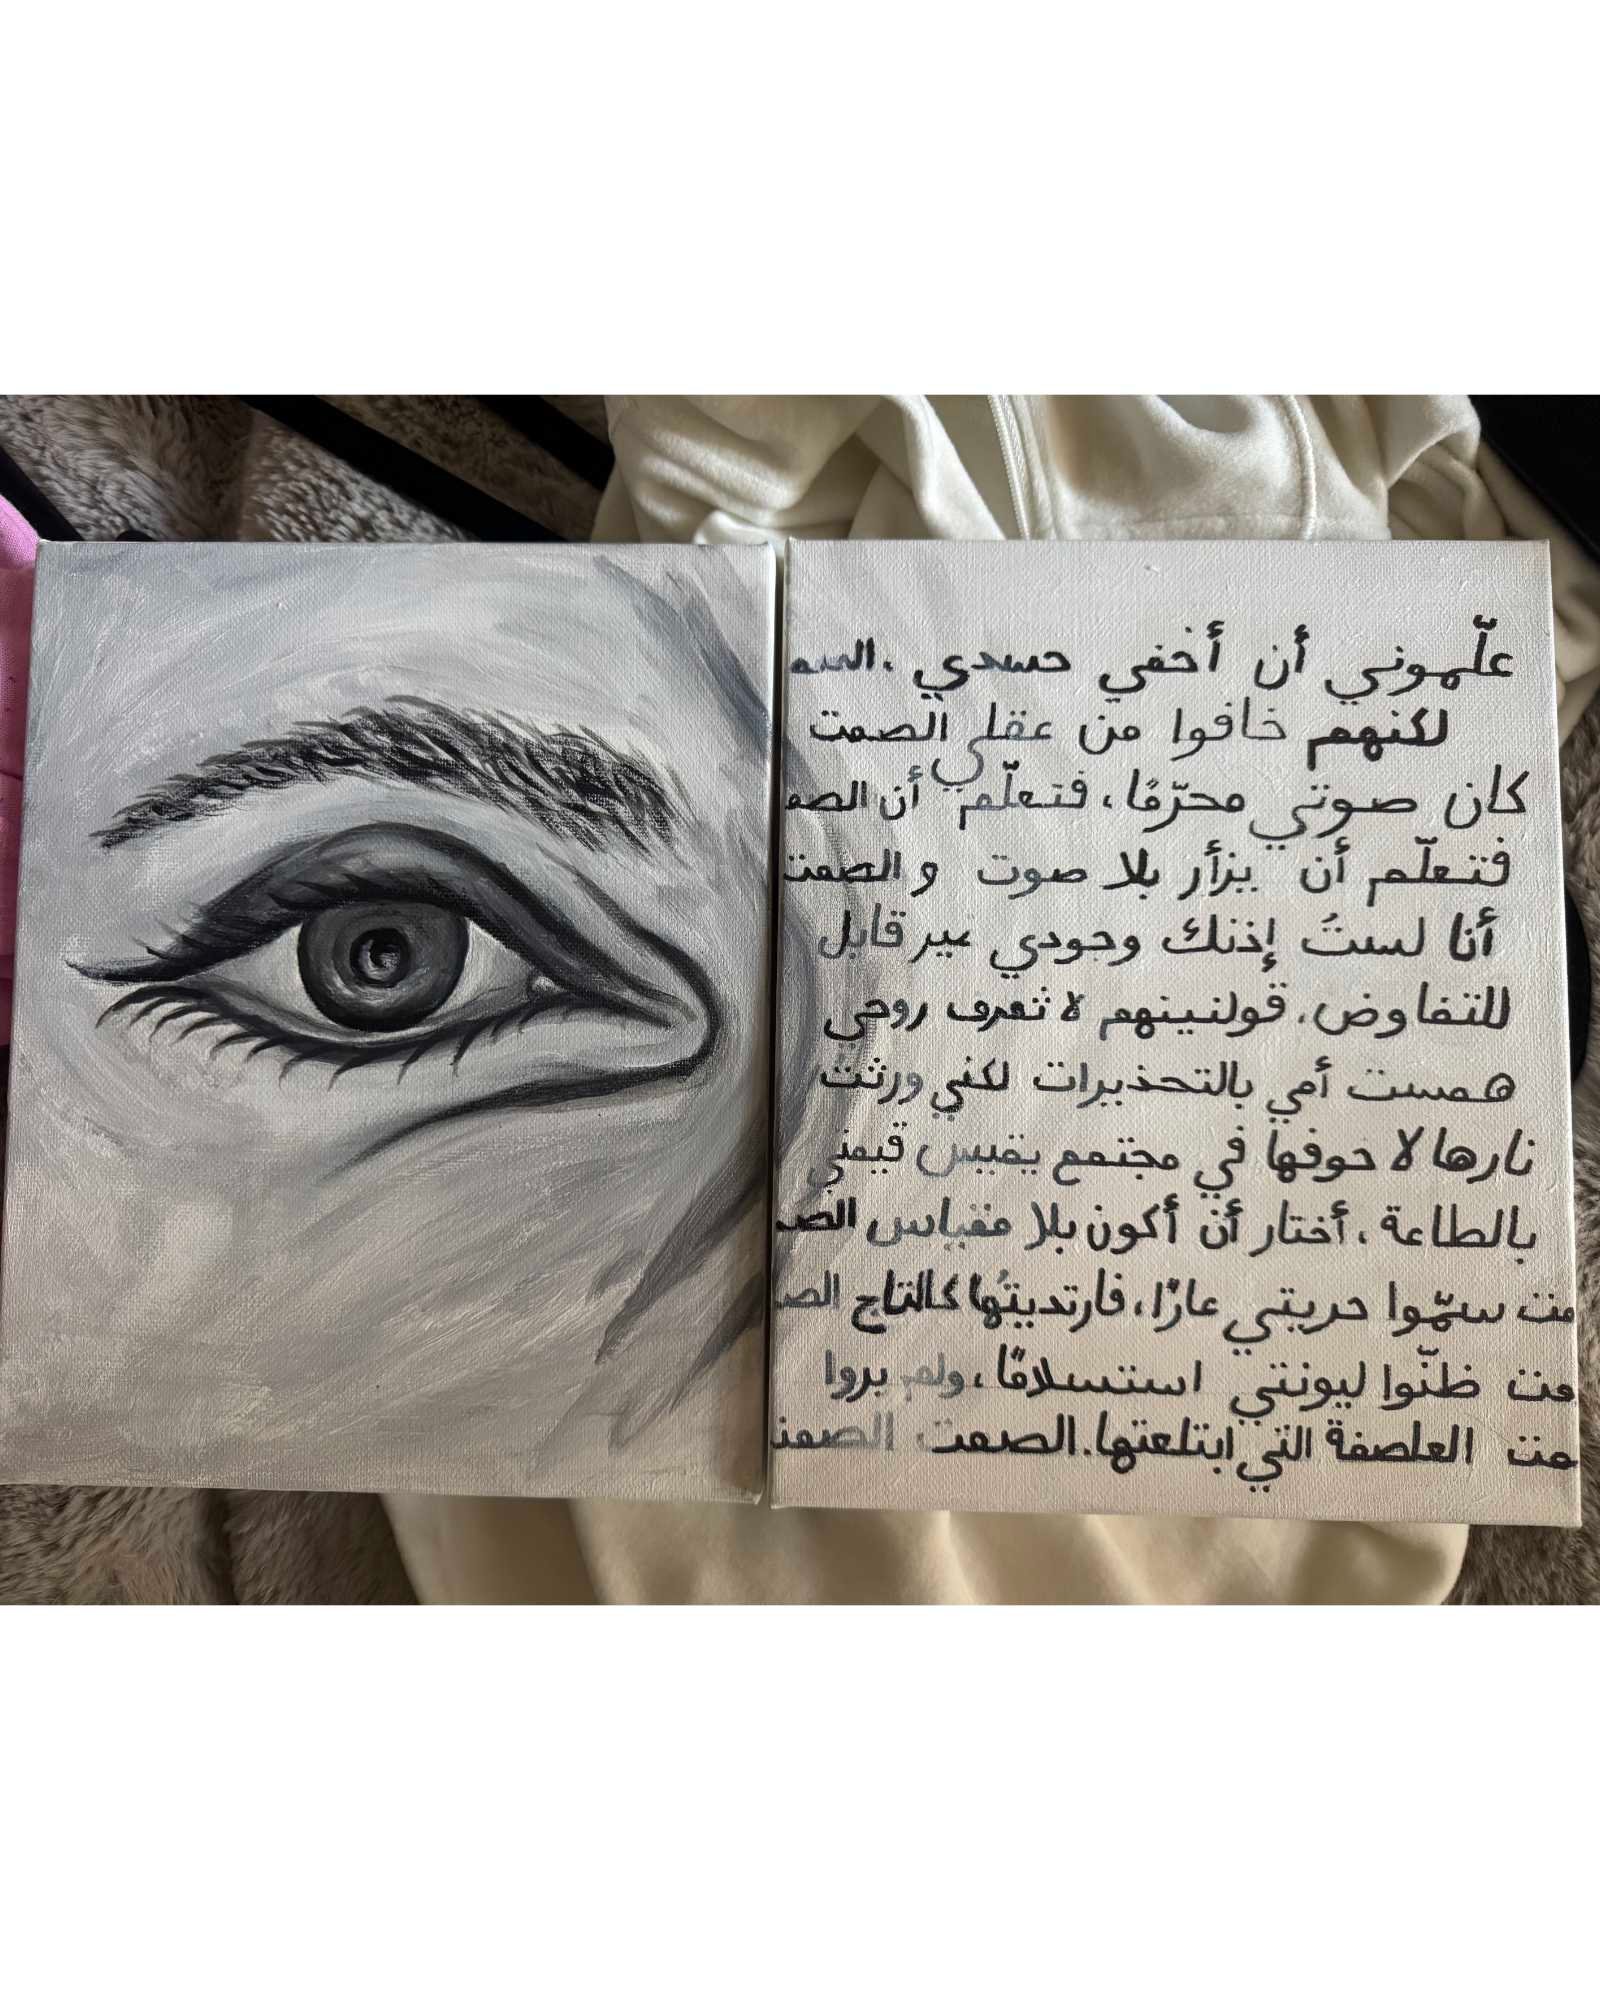 علّموني أن أخفي حسدي ،الصم
لكنهم خافوا من عقلي الصمت
كان صوتي محرّمًا، فتعلّم أن الصم
فتعلّم أن يزأر بلا صوت و الصمت
أنا لستُ إذنك وجودي غير قابل
للتفاوض، قولنينهم لا تعرف روحي
همست أمي بالتحذيرات لكني ورثت
نارها لا خوفها في مجتمع يقيس قيمتي
بالطاعة ،أختار أن أكون بلا مقياس الصم
مت سمّوا حريتي عارًا، فارتديتُها كالتاج الص
مت ظنّوا ليونتي استسلامًا، ولم يروا
مت العاصفة التي ابتلعتها.الصمت الصمت